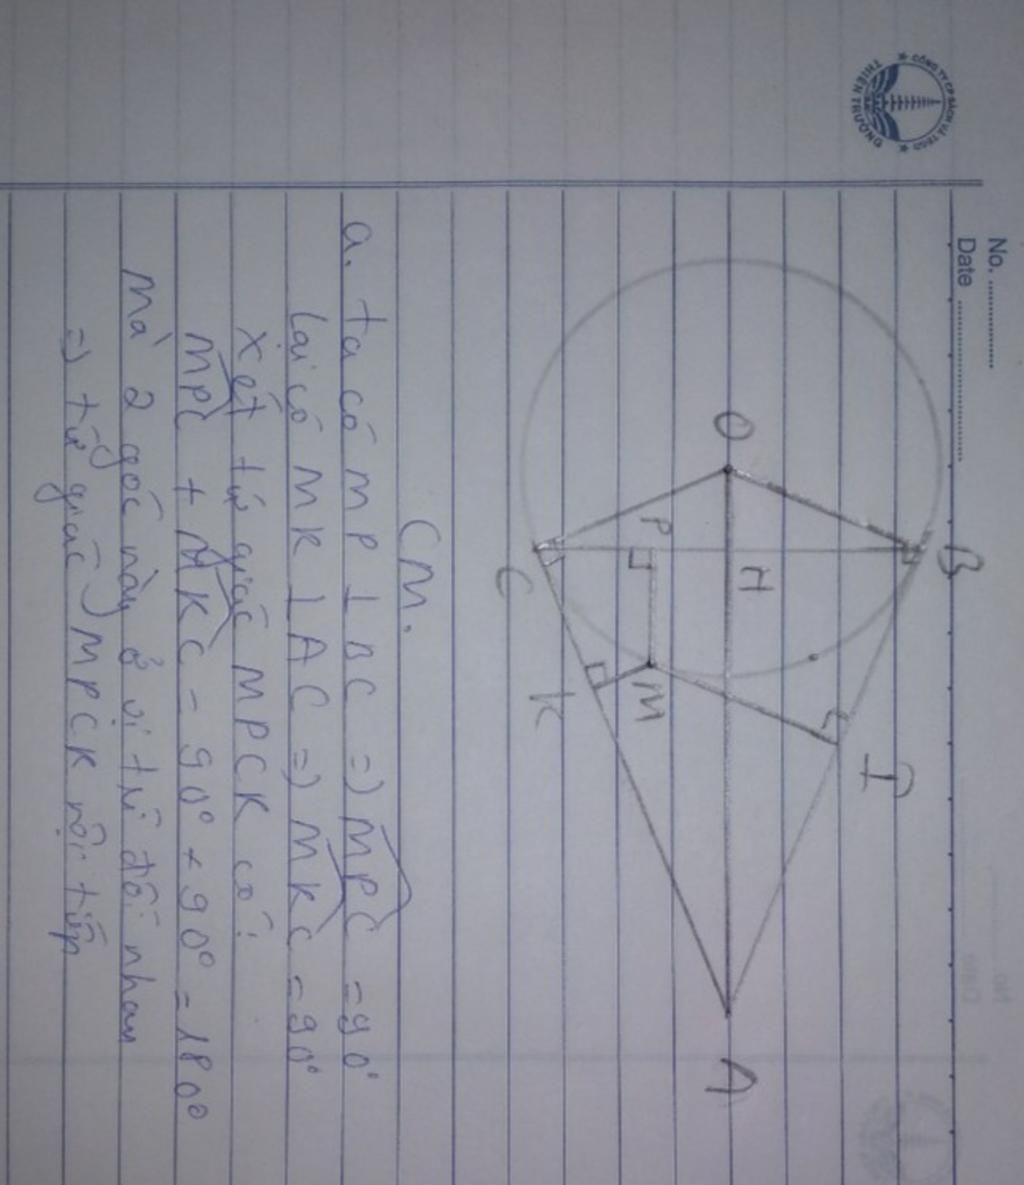 No. ....................
Date ....................
★ CÔNG TY CP SÁCH VÀ TBGD ★
THIÊN TRƯỜNG
B
I
O
H
A
P
M
C
K
CM.
a. ta có MP ⊥ BC => MPC = 90°
lại có MK ⊥ AC => MKC = 90°
xét tứ giác MPCK có:
MPC + MKC = 90° + 90° = 180°
mà 2 góc này ở vị trí đối nhau
=> tứ giác MPCK nội tiếp